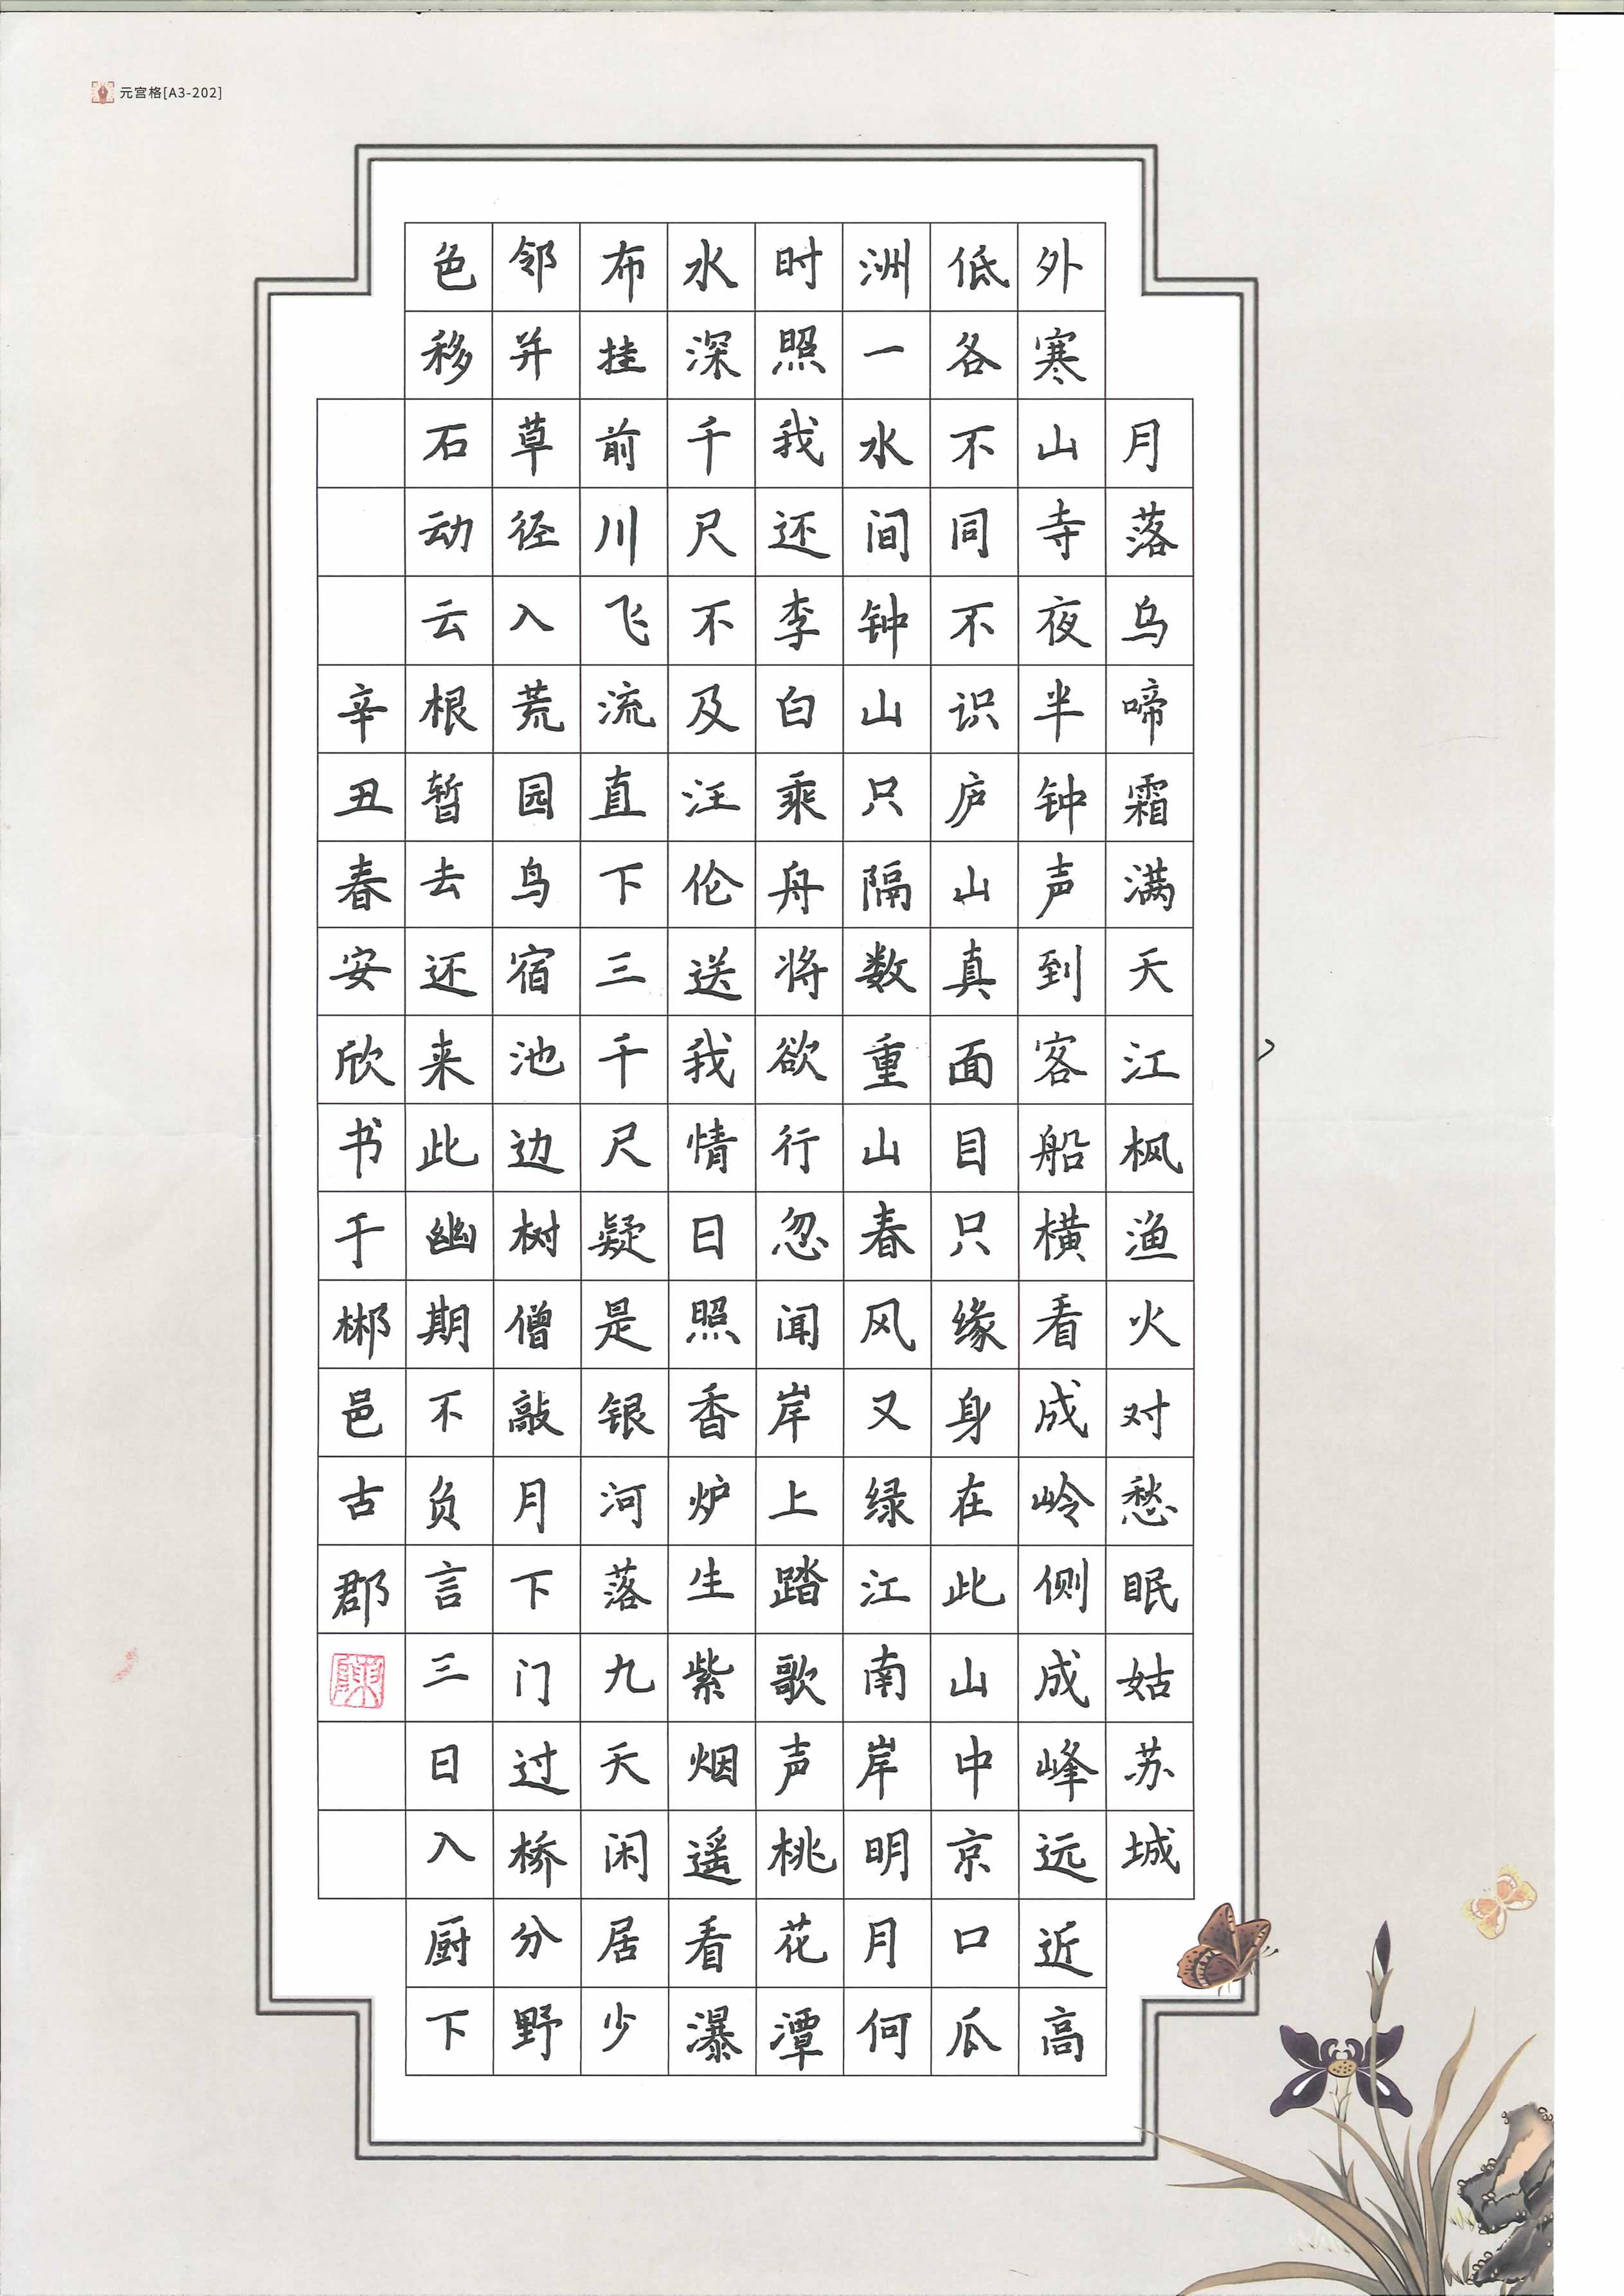 元宫格[A3-202]
月落乌啼霜满天江枫渔火对愁眠姑苏城
外寒山寺夜半钟声到客船横看成岭侧成峰远近高
低各不同不识庐山真面目只缘身在此山中京口瓜
洲一水间钟山只隔数重山春风又绿江南岸明月何
时照我还李白乘舟将欲行忽闻岸上踏歌声桃花潭
水深千尺不及汪伦送我情日照香炉生紫烟遥看瀑
布挂前川飞流直下三千尺疑是银河落九天闲居少
邻并草径入荒园鸟宿池边树僧敲月下门过桥分野
色移石动云根暂去还来此幽期不负言三日入厨下
辛丑春安欣书于郴邑古郡
陈